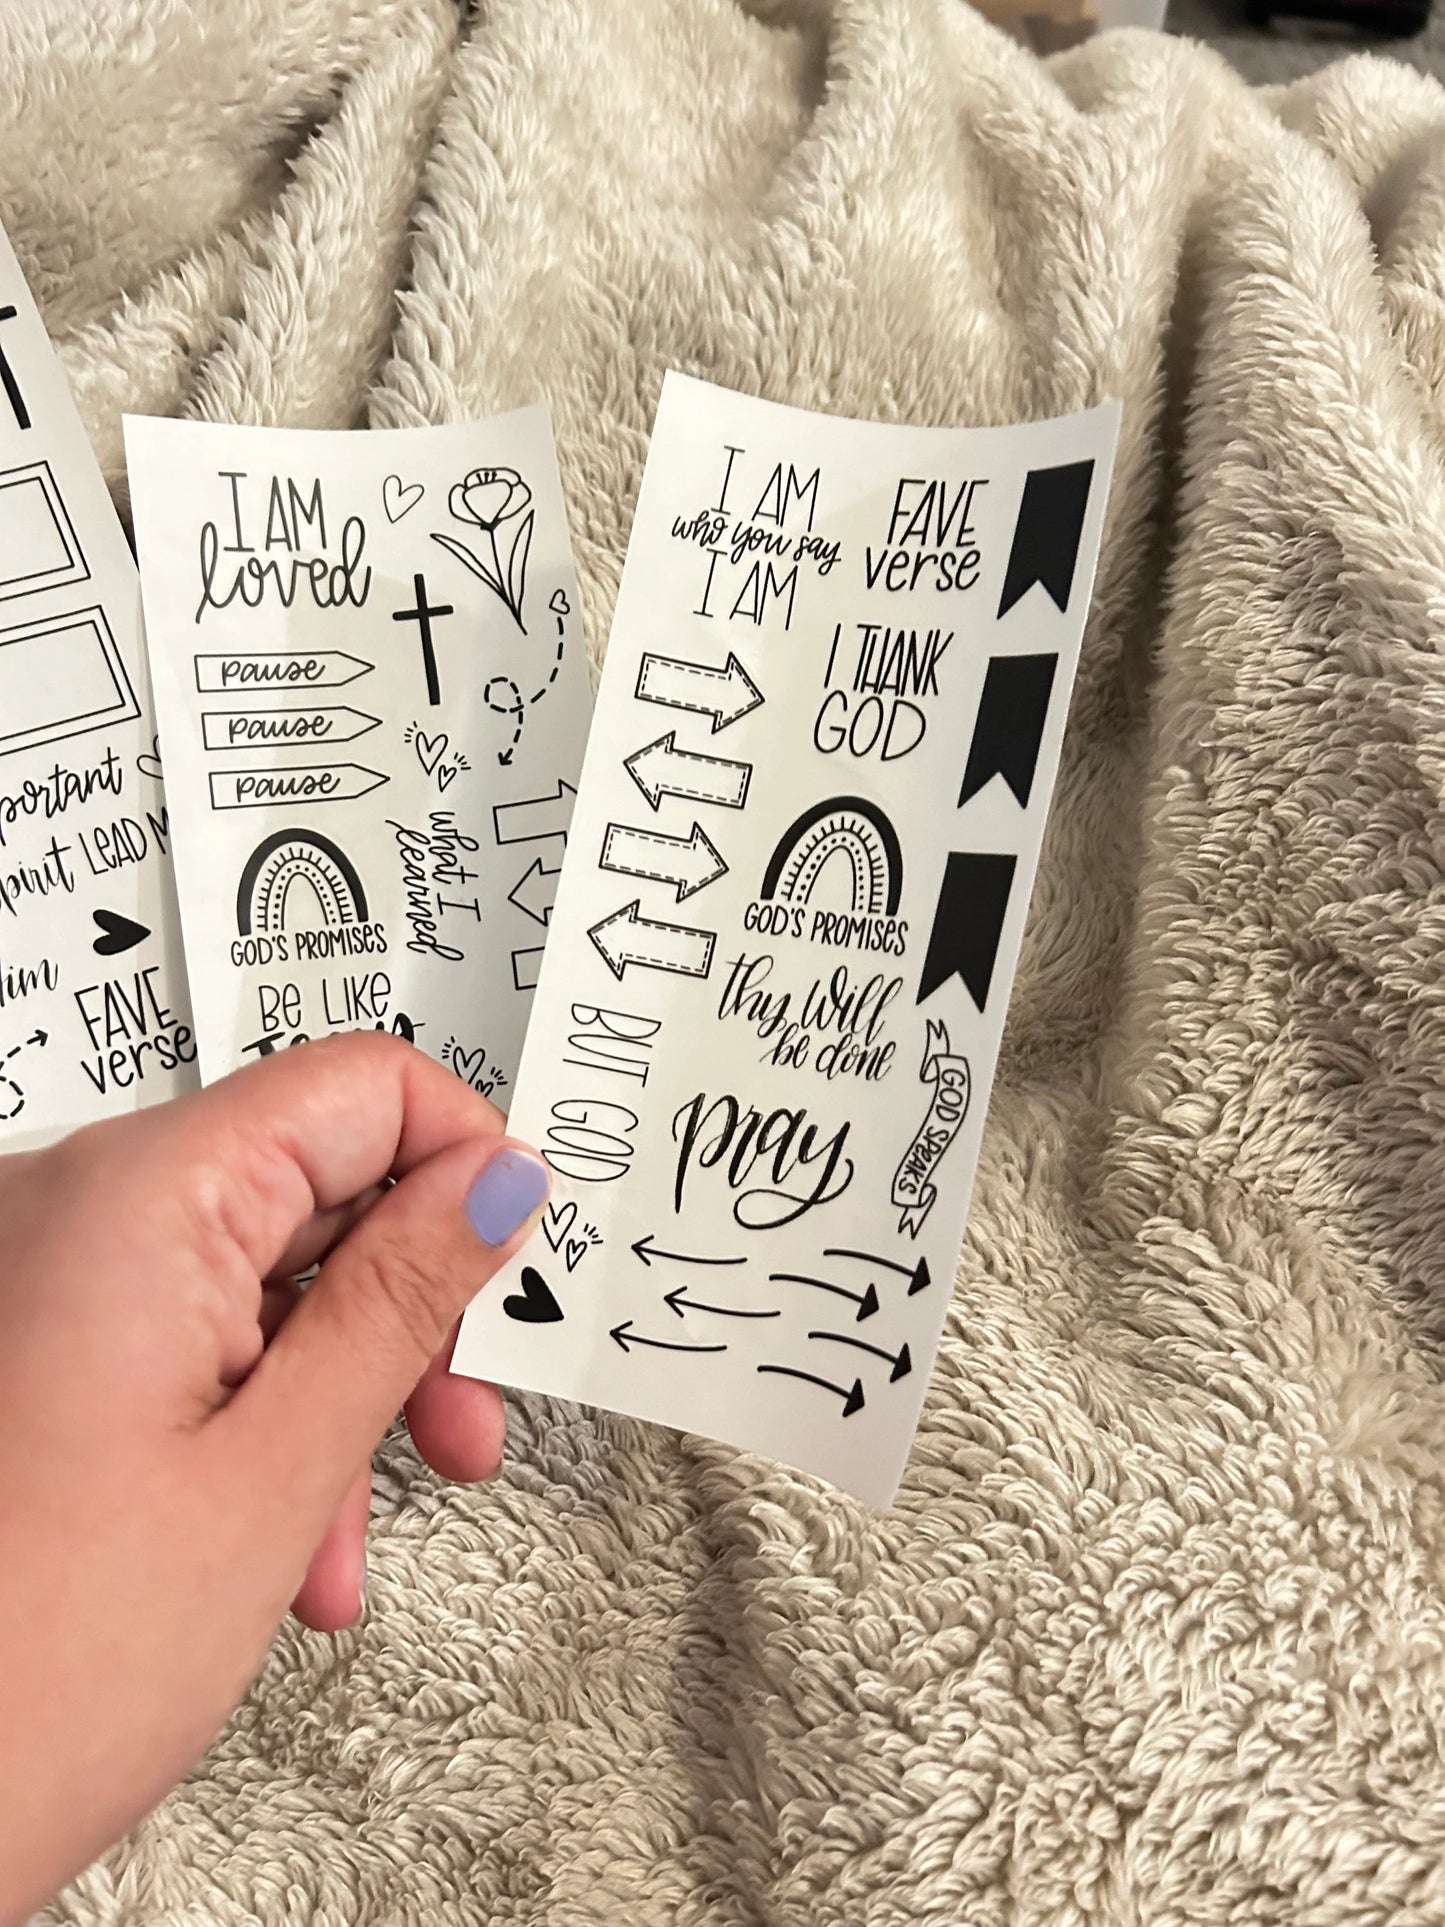 LEAD
FAVE
verse
I AM
loved
pause
pause
pause
what I
learned
GOD'S PROMISES
BE LIKE
I AM
who you say
I AM
FAVE
verse
I THANK
GOD
GOD'S PROMISES
thy will
be done
BUT GOD
pray
GOD SPEAKS